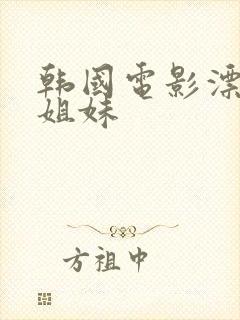 韩國電影漂
姐妹
方祖中